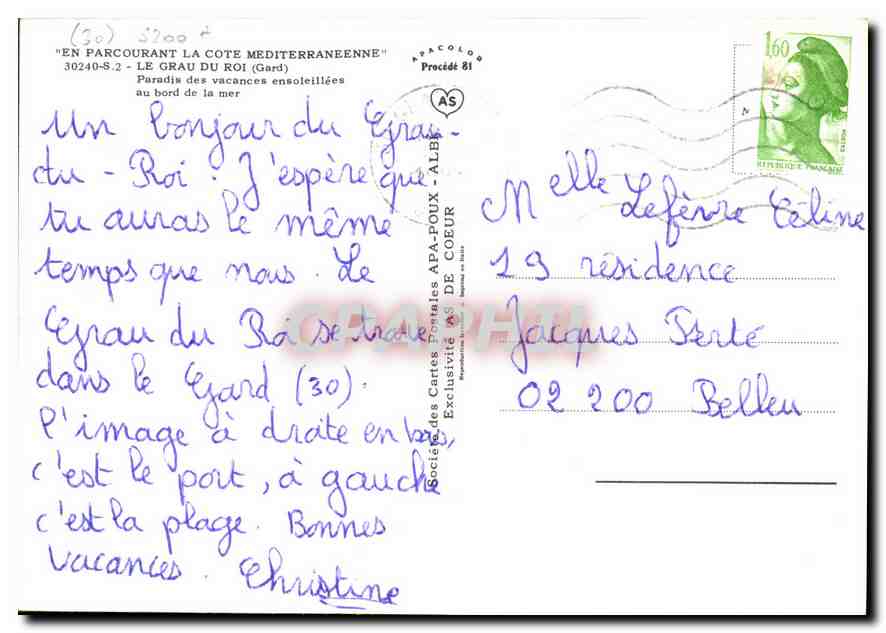 (30) 5200 F
"EN PARCOURANT LA COTE MEDITERRANEENNE"
30240-S.2 - LE GRAU DU ROI (Gard)
Paradis des vacances ensoleillées
au bord de la mer
Un bonjour du Grau-
du-Roi. J'espère que
tu auras le même
temps que nous. Le
Grau du Roi se trouve
dans le Gard (30).
l'image à droite en bas,
c'est le port, à gauche
c'est la plage. Bonnes
Vacances. Christine
APACOLOR
Procédé 81
AS
Société des Cartes Postales APA-POUX - ALBI
Exclusivité AS DE COEUR
CPAPHIL
1,60
POSTES
REPUBLIQUE FRANÇAISE
Melle Lefèvre Céline
19 résidence
Jacques Perté
02 200 Belleu